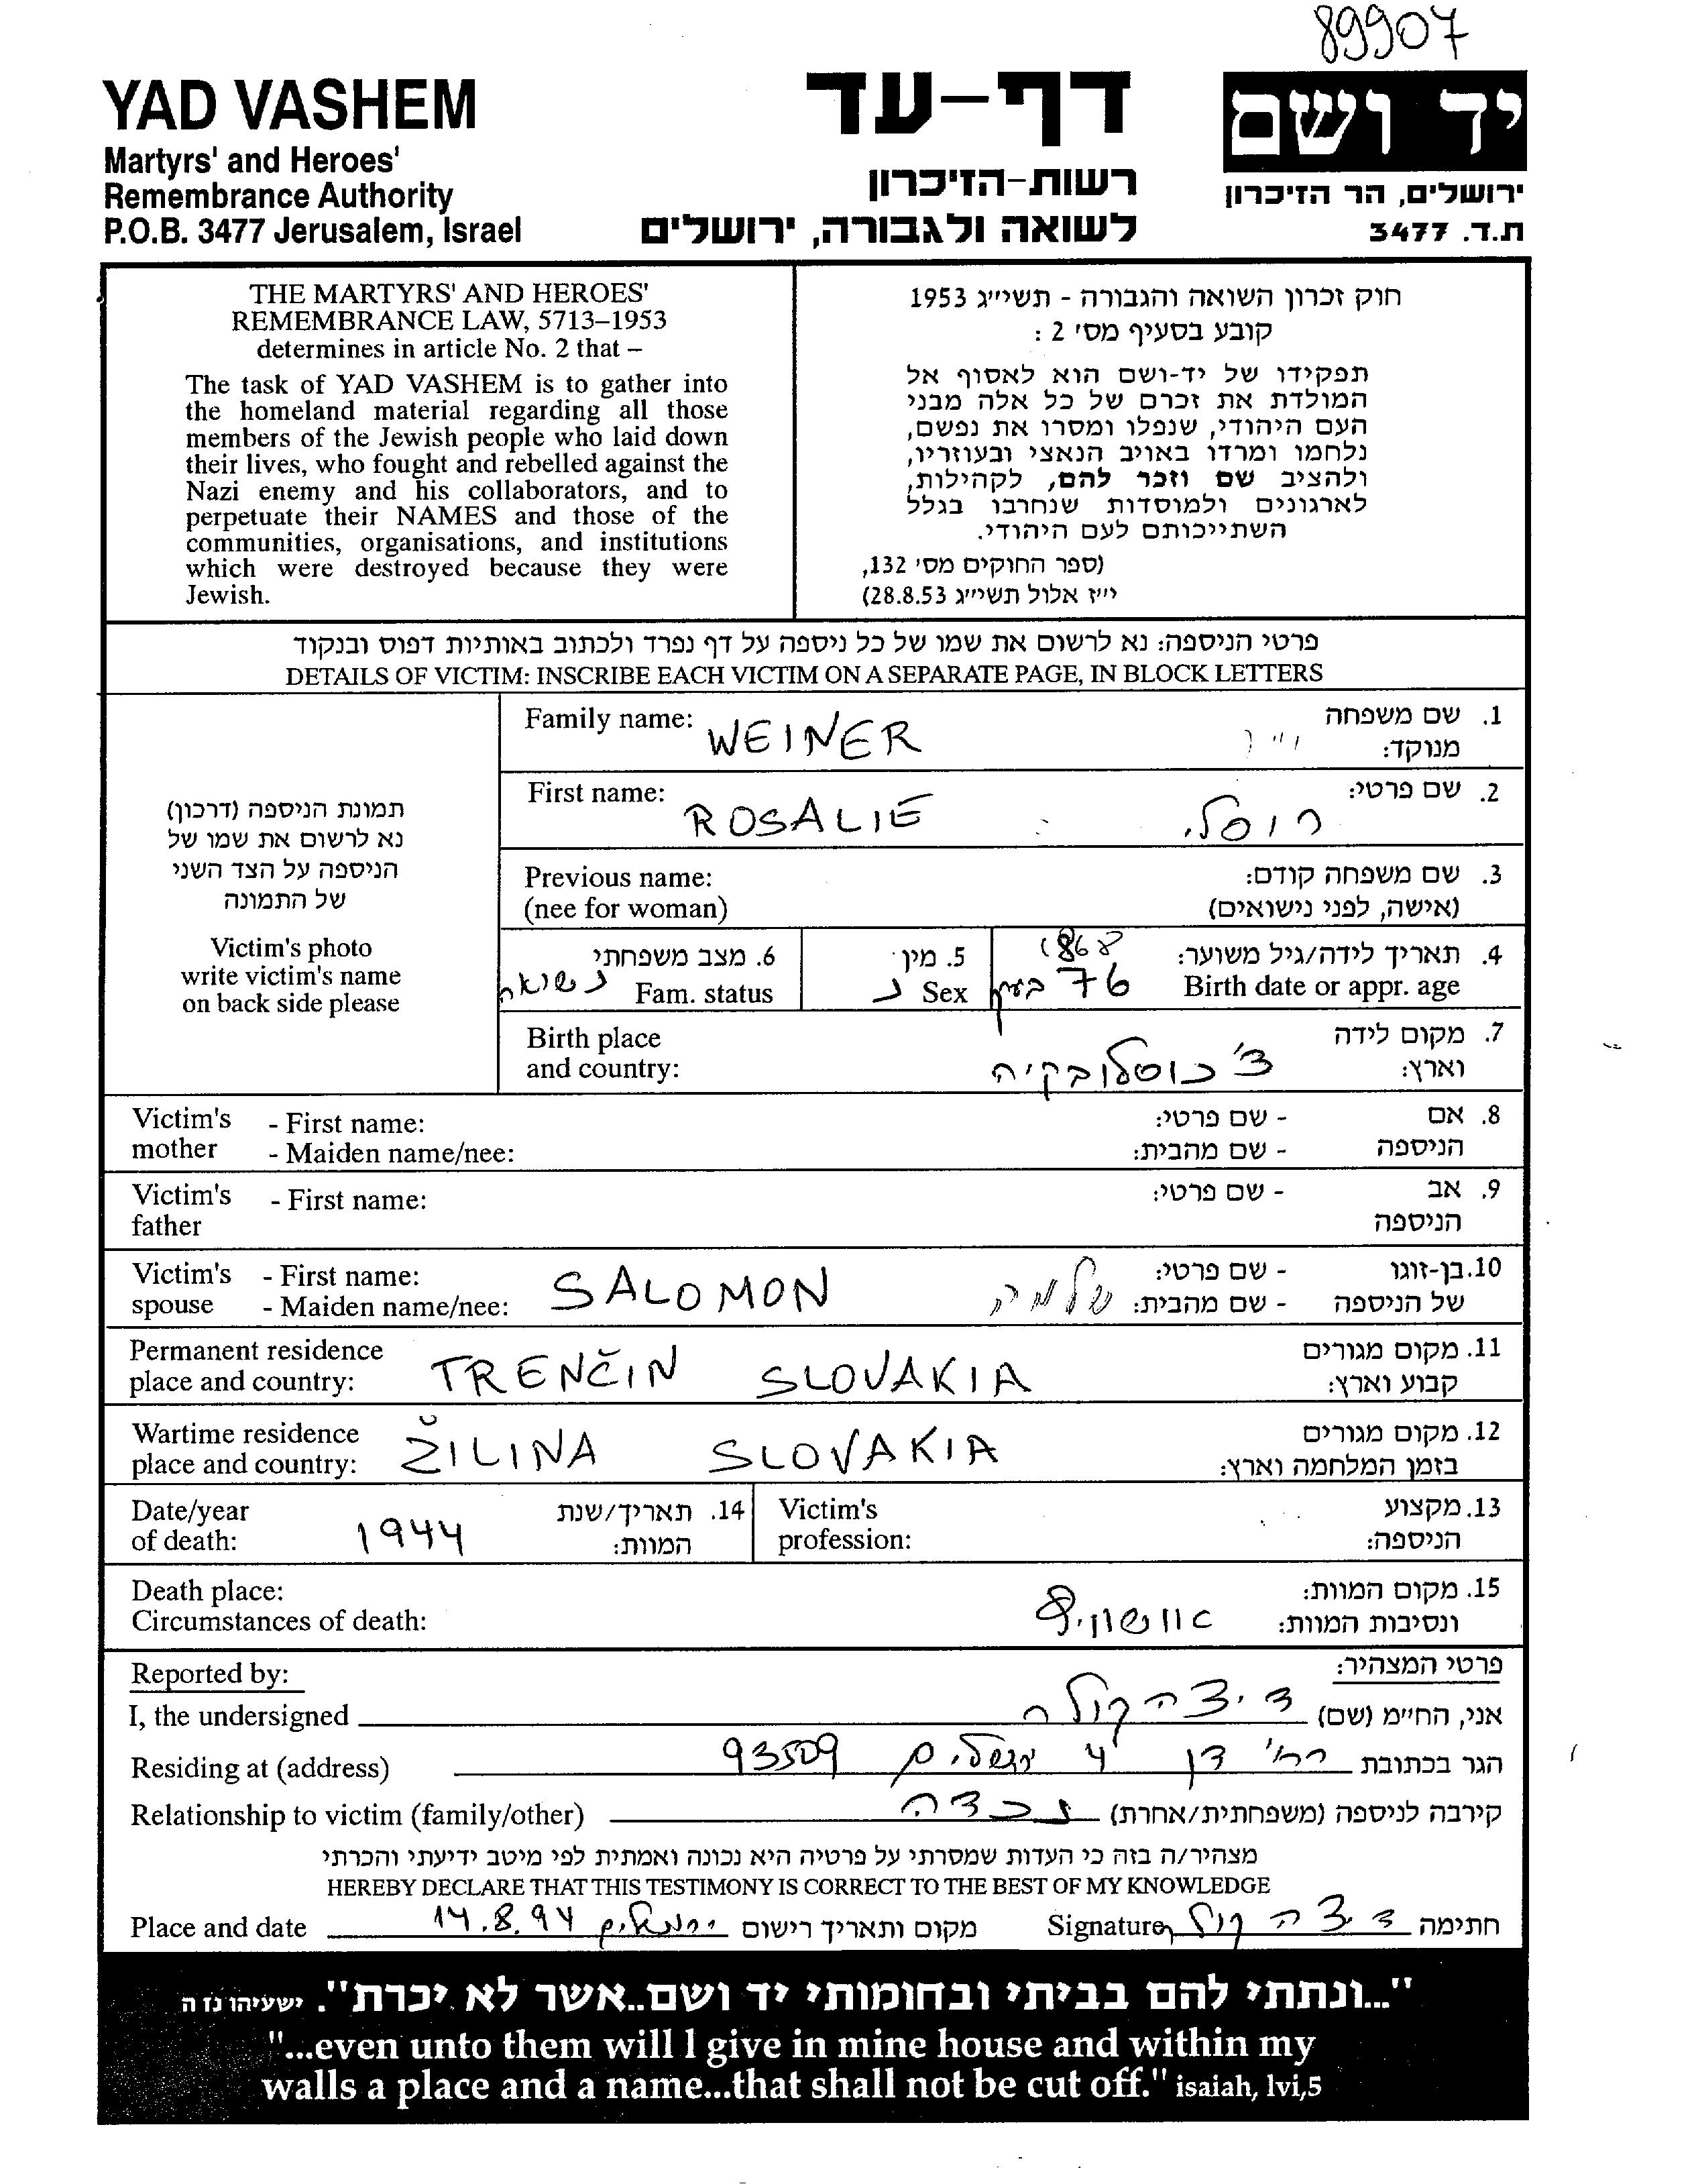 89907
YAD VASHEM
Martyrs' and Heroes'
Remembrance Authority
P.O.B. 3477 Jerusalem, Israel
דף-עד
רשות-הזיכרון
לשואה ולגבורה, ירושלים
יד ושם
ירושלים, הר הזיכרון
ת.ד. 3477
THE MARTYRS' AND HEROES'
REMEMBRANCE LAW, 5713–1953
determines in article No. 2 that –
The task of YAD VASHEM is to gather into
the homeland material regarding all those
members of the Jewish people who laid down
their lives, who fought and rebelled against the
Nazi enemy and his collaborators, and to
perpetuate their NAMES and those of the
communities, organisations, and institutions
which were destroyed because they were
Jewish.
חוק זכרון השואה והגבורה - תשי״ג 1953
קובע בסעיף מס׳ 2 :
תפקידו של יד-ושם הוא לאסוף אל
המולדת את זכרם של כל אלה מבני
העם היהודי, שנפלו ומסרו את נפשם,
נלחמו ומרדו באויב הנאצי ובעוזריו,
ולהציב שם וזכר להם, לקהילות,
לארגונים ולמוסדות שנחרבו בגלל
השתייכותם לעם היהודי.
(ספר החוקים מס׳ 132,
י״ז אלול תשי״ג 28.8.53)
פרטי הניספה: נא לרשום את שמו של כל ניספה על דף נפרד ולכתוב באותיות דפוס ובנקוד
DETAILS OF VICTIM: INSCRIBE EACH VICTIM ON A SEPARATE PAGE, IN BLOCK LETTERS
תמונת הניספה (דרכון)
נא לרשום את שמו של
הניספה על הצד השני
של התמונה
Victim's photo
write victim's name
on back side please
Family name: WEINER
1. שם משפחה
מנוקד:
First name: ROSALIE
2. שם פרטי: רוסלי
Previous name:
(nee for woman)
3. שם משפחה קודם:
(אישה, לפני נישואים)
4. תאריך לידה/גיל משוער: 1868
Birth date or appr. age 76 בערך
5. מין
Sex נ
6. מצב משפחתי
Fam. status נשואה
Birth place
and country:
7. מקום לידה
וארץ: צ'כוסלובקיה
Victim's mother - First name:
- Maiden name/nee:
8. אם הניספה - שם פרטי:
- שם מהבית:
Victim's father - First name:
9. אב הניספה - שם פרטי:
Victim's spouse - First name:
- Maiden name/nee: SALOMON
10. בן-זוגו של הניספה - שם פרטי:
- שם מהבית: שלמה
Permanent residence
place and country: TRENČIN SLOVAKIA
11. מקום מגורים
קבוע וארץ:
Wartime residence
place and country: ŽILINA SLOVAKIA
12. מקום מגורים
בזמן המלחמה וארץ:
Date/year
of death: 1944
14. תאריך/שנת
המוות:
Victim's
profession:
13. מקצוע
הניספה:
Death place:
Circumstances of death:
15. מקום המוות:
ונסיבות המוות: אוושויץ
Reported by:
פרטי המצהיר:
I, the undersigned
אני, הח״מ (שם)
Residing at (address)
הגר בכתובת רח' דן 4 ירושלים 93509
Relationship to victim (family/other)
קירבה לניספה (משפחתית/אחרת) נכדה
מצהיר/ה בזה כי העדות שמסרתי על פרטיה היא נכונה ואמתית לפי מיטב ידיעתי והכרתי
HEREBY DECLARE THAT THIS TESTIMONY IS CORRECT TO THE BEST OF MY KNOWLEDGE
Place and date
מקום ותאריך רישום ירושלים 14.8.94
Signature
חתימה
"...ונתתי להם בביתי ובחומותי יד ושם..אשר לא יכרת". ישעיהו נו ה
"...even unto them will I give in mine house and within my
walls a place and a name...that shall not be cut off." isaiah, lvi,5